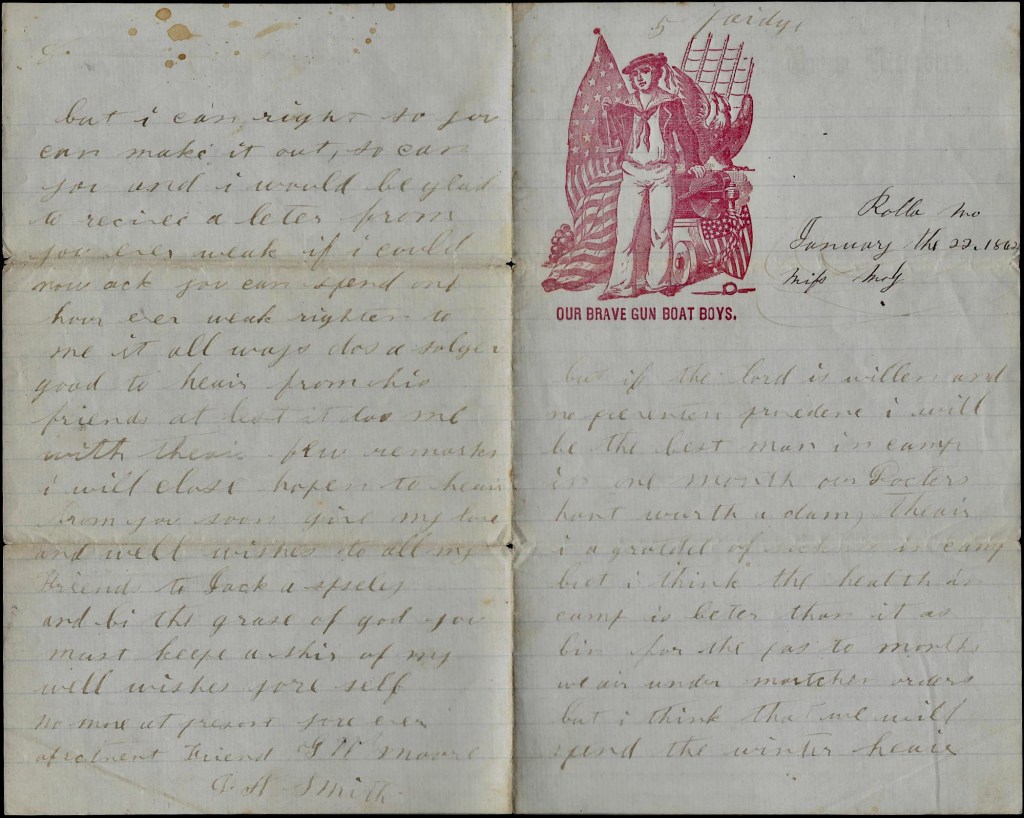 but i can right so you
can make it out, so can
you and i would be glad
to recivee a leter from
you ever weak if i could
now ack you can spend one
hour ever weak righten to
me it all ways dos a solger
good to heair from his
friends at lest it dos me
with theais few remarks
i will close hopen to heair
from you soon give my love
and well wishes to all my
Friends to Jack a
and bi the grase of god you
must keepe a shir of my
well wishes yore self
no more at presont yore ever
afectment Friend G W Moore
J A Smith
5
Rolla Mo
January the 22. 186
Miss Moly
OUR BRAVE GUN BOAT BOYS.
but if the lord is willen and
no i will
be the best man in camp
in one month our Docters
hant wurth a dam, theair
i a gratdel of in camp
but i think the health in
camp is beter than it as
bin for the pas to months
we air under martchen orders
but i think that we will
spend the winter heair